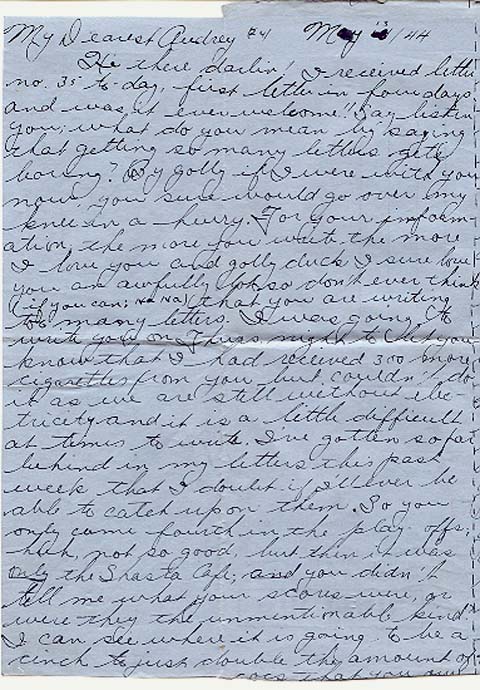 My Dearest Audrey #4 May 13/44
Hi there darlin! I received letter
no. 35 to-day, first letter in four days
and was it ever welcome!! Say listen
you; what do you mean by saying
that getting so many letters gets
boring? By golly if I were with you
now you sure would go over my
knee in a hurry. For your inform-
ation, the more you write the more
I love you and golly duck I sure love
you an awfully lot so don't ever think
(if you can; Ha Ha) that you are writing
to many letters. I was going to
write you on Thurs night to let you
know that I had received 300 more
cigarettes from you but couldn't do
it as we are still without elec-
tricity and it is a little difficult
at times to write. I've gotten so far
behind in my letters this past
week that I doubt if I'll ever be
able to catch up on them. So you
only came fourth in the play-offs;
huh, not so good, but then it was
only the Shasta Cafe; and you didn't
tell me what your scores were, or
were they the unmentionable kind"
I can see where it is going to be a
cinch to just double the amount of
that you